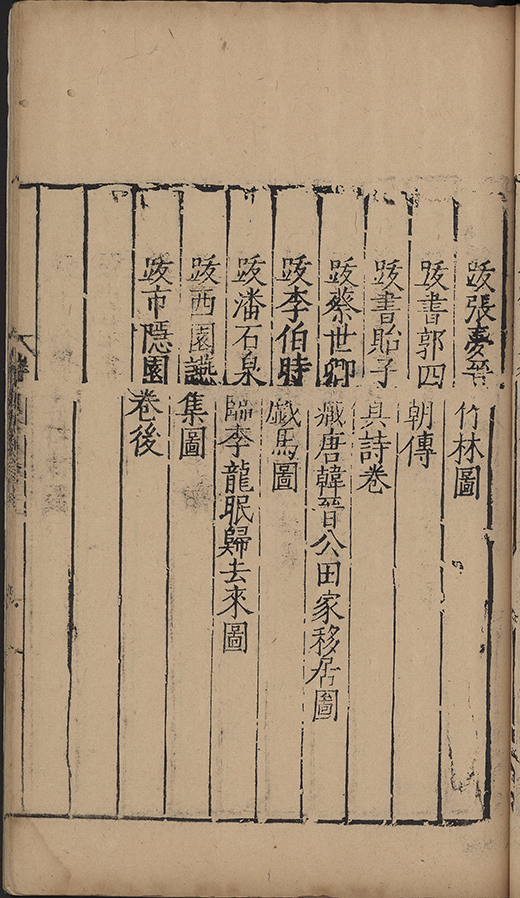 跋張夢晉竹林圖
跋書郭四朝傳
跋書貽子具詩卷
跋蔡世卿藏唐韓晉公田家移居圖
跋李伯時戲馬圖
跋潘石泉臨李龍眠歸去來圖
跋西園讌集圖
跋市隱園卷後